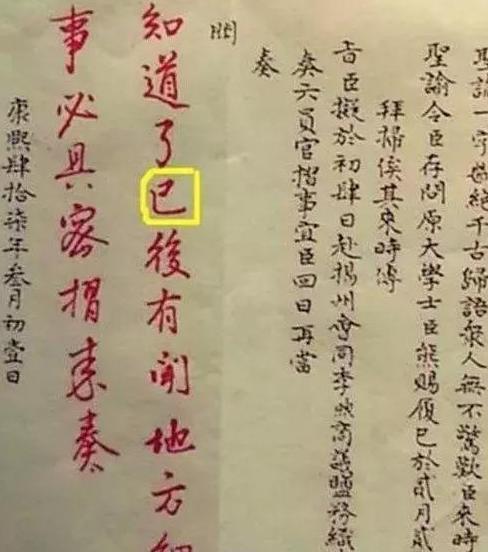 聖諭一字絕千古歸語衆人無不驚歎臣來時
聖諭令臣存問原大學士臣熊賜履已於貳月貳
拜掃俟其來時傳
旨臣擬於初肆日赴揚州會同李煦商議鹽務
奏六員官摺事宜臣回日再當
奏
知道了已後有聞地方細
事必具密摺來奏
康熙肆拾柒年叁月初壹日